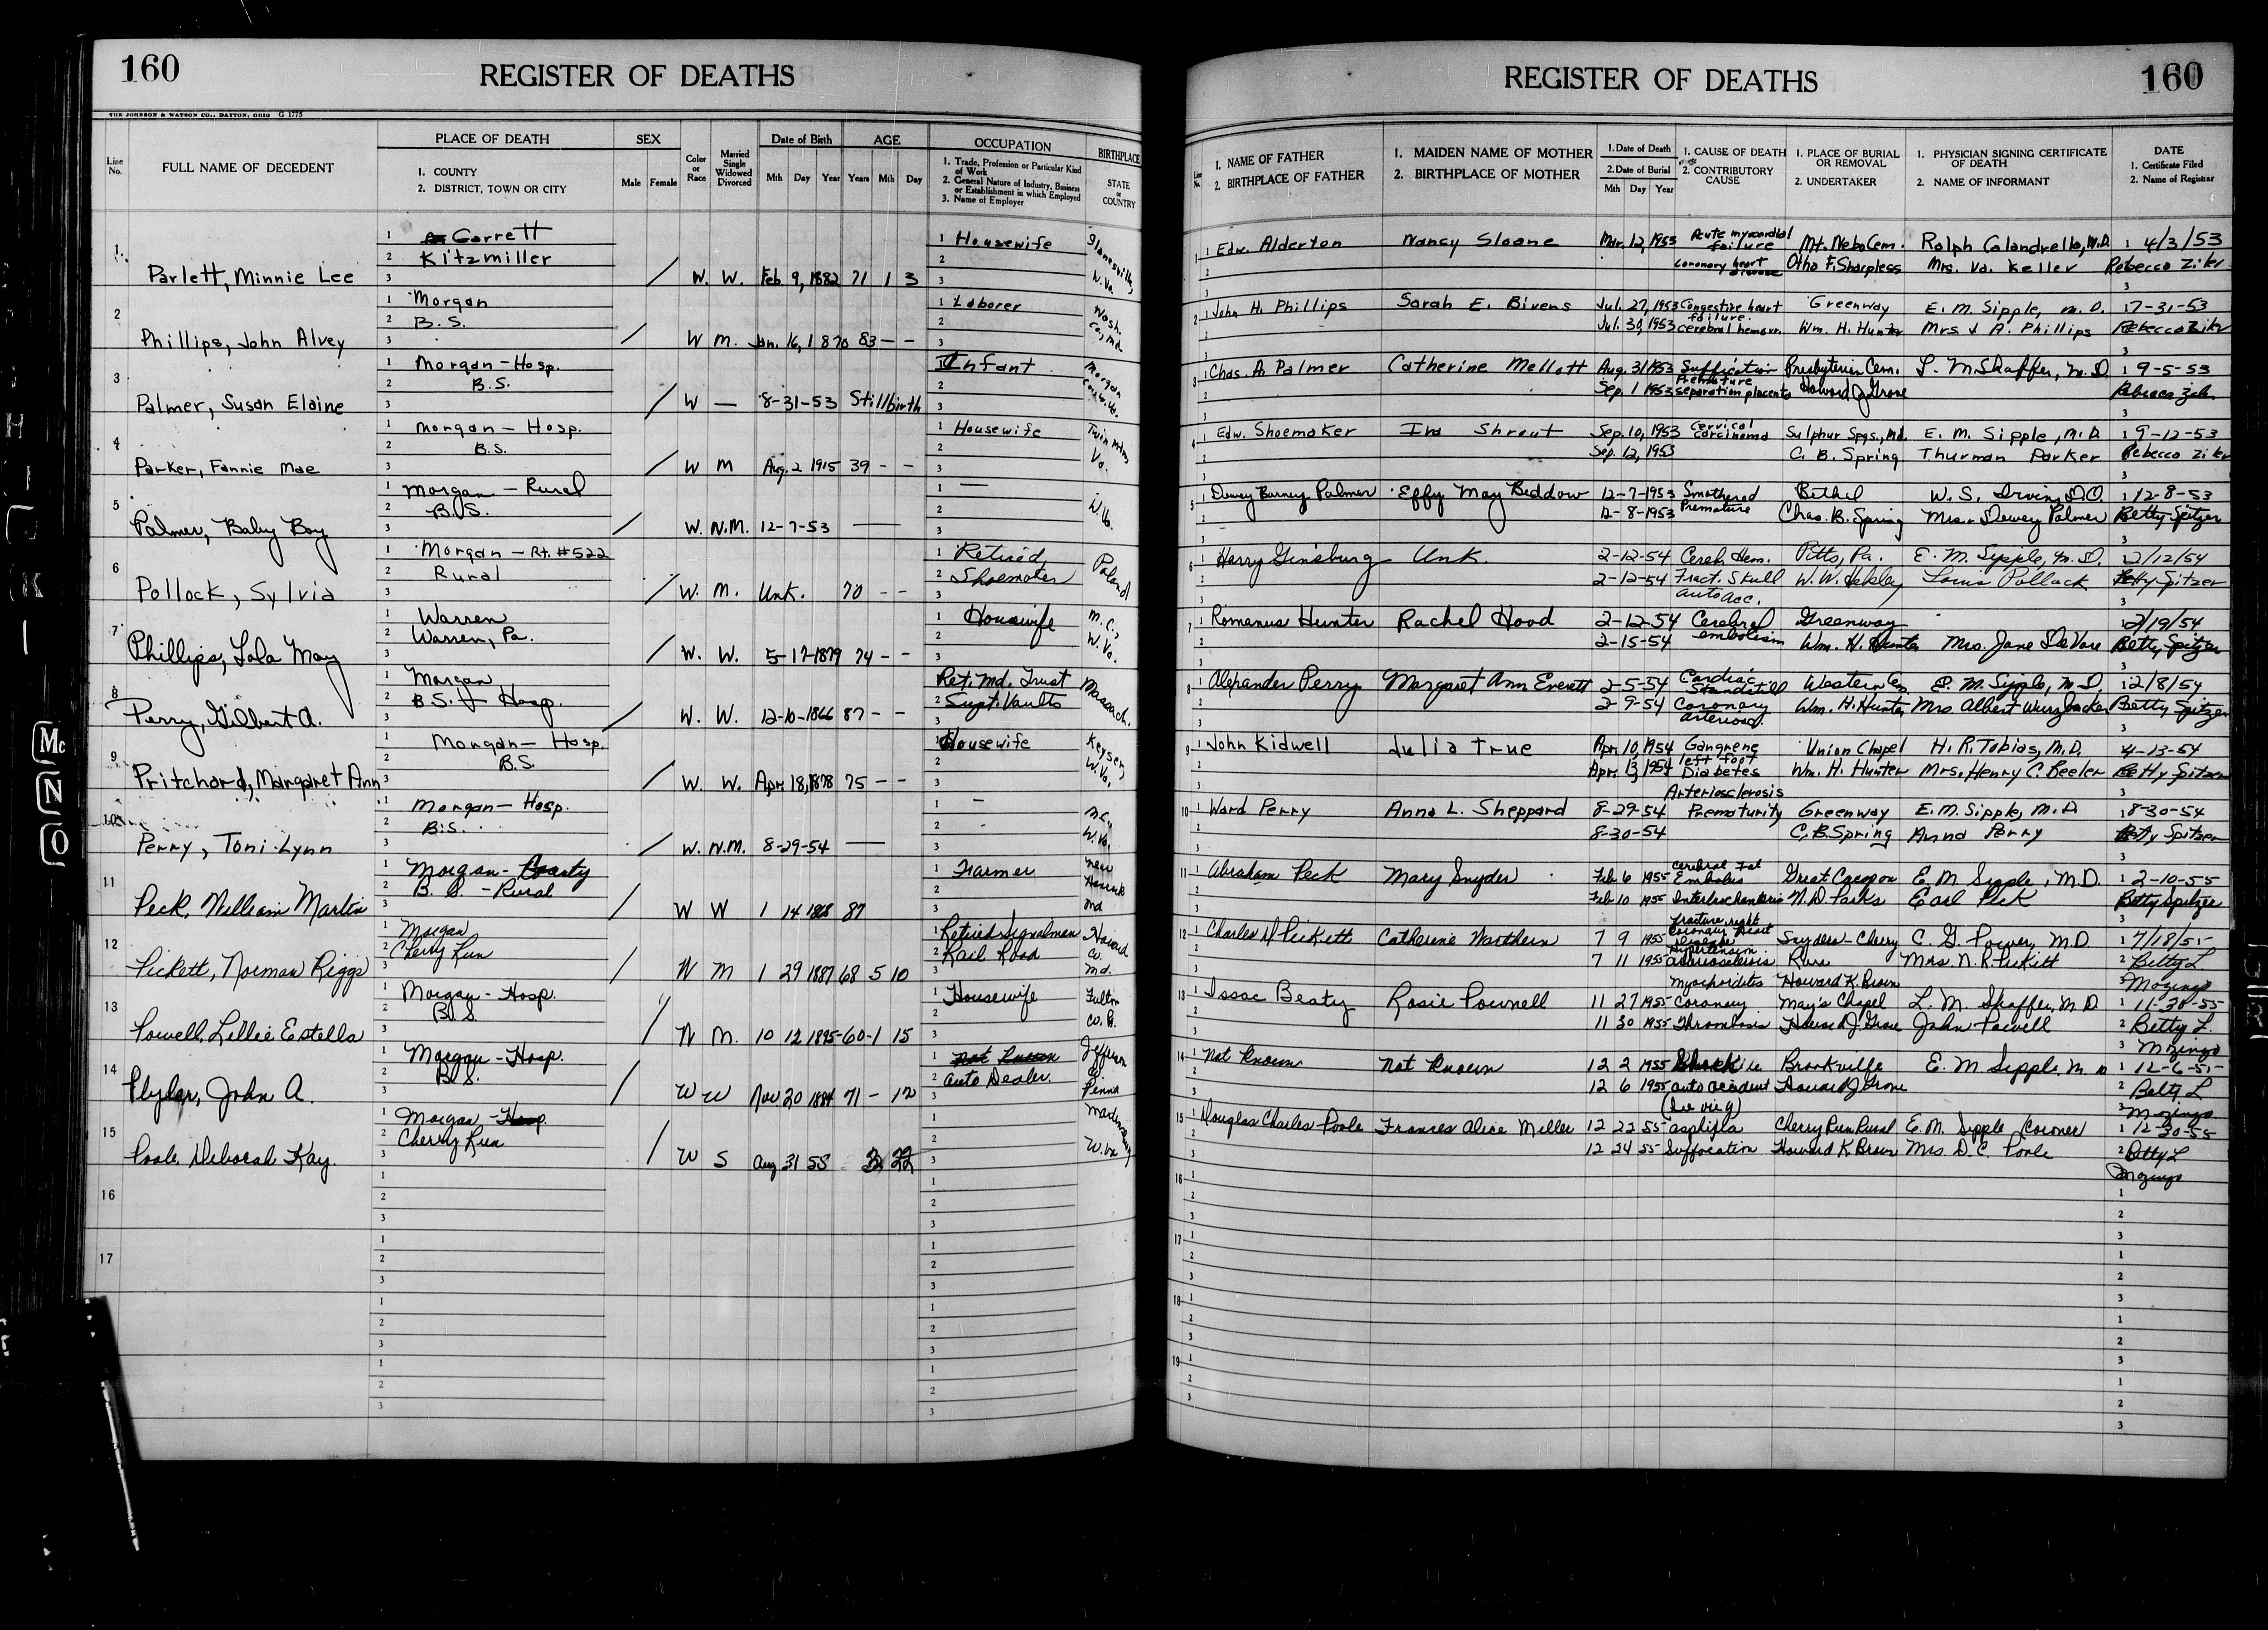 160
REGISTER OF DEATHS
THE JOHNSON & WATSON CO., DAYTON, OHIO G 1775
Line No.
FULL NAME OF DECEDENT
PLACE OF DEATH
1. COUNTY
2. DISTRICT, TOWN OR CITY
SEX
Male Female
Color or Race
Married Single Widowed Divorced
Date of Birth
Mth Day Year
AGE
Years Mth Day
OCCUPATION
1. Trade, Profession or Particular Kind of Work
2. General Nature of Industry, Business or Establishment in which Employed
3. Name of Employer
BIRTHPLACE
STATE or COUNTRY
1 Garrett Housewife
Kitzmiller
Parlett, Minnie Lee / W. W. Feb 9, 1882 71 1 3 W. Va.
2 Morgan Laborer Wash. Co., Md.
B.S.
Phillips, John Alvey / W M. Jan. 16, 1870 83 — —
3 Morgan - Hosp. Infant Morgan
B.S.
Palmer, Susan Elaine / W — 8-31-53 Stillbirth
4 Morgan - Hosp. Housewife Va.
B.S.
Parker, Fannie Mae / W M Aug. 2 1915 39 - -
5 Morgan - Rural —
B.S.
Palmer, Baby Boy / W. N.M. 12-7-53 —
6 Morgan - Rt. #522 Retired Poland
Rural Shoemaker
Pollock, Sylvia / W. M. Unk. 70 - -
7 Warren Housewife M.C., W. Va.
Warren, Pa.
Phillips, Lola May / W. W. 5-17-1879 74 - -
8 Morgan Ret. Md. Trust Massach.
B.S. Hosp. Supt. Vaults
Perry, Gilbert A. / W. W. 12-10-1866 87 - -
9 Morgan - Hosp. Housewife Keyser, W. Va.
B.S.
Pritchard, Margaret Ann / W. W. Apr. 18, 1878 75 - -
10 Morgan - Hosp. - M.C., W. Va.
B.S. -
Perry, Toni Lynn / W. N.M. 8-29-54 —
11 Morgan - County Farmer near Hancock Md
B. S. - Rural
Peck, William Martin / W W 1 14 1868 87
12 Morgan Retired Signalman Howard Co. Md.
Cherry Run Rail Road
Pickett, Norman Riggs / W M 1 29 1887 68 5 10
13 Morgan - Hosp. Housewife Fulton Co.
B.S.
Powell, Lillie Estella / W M. 10 12 1895 60-1 15
14 Morgan - Hosp. Not Known Jefferson Co. Penna
B.S. Auto Dealer.
Plyler, John A. / W W Nov. 20 1884 71 - 12
15 Morgan - Hosp. Martinsburg W. Va
Cherry Run
Poole, Deborah Kay. / W S Aug 31 55 3 22
16
17
REGISTER OF DEATHS
160
Line No.
1. NAME OF FATHER
2. BIRTHPLACE OF FATHER
1. MAIDEN NAME OF MOTHER
2. BIRTHPLACE OF MOTHER
1. Date of Death
2. Date of Burial
Mth Day Year
1. CAUSE OF DEATH
2. CONTRIBUTORY CAUSE
1. PLACE OF BURIAL OR REMOVAL
2. UNDERTAKER
1. PHYSICIAN SIGNING CERTIFICATE OF DEATH
2. NAME OF INFORMANT
DATE
1. Certificate Filed
2. Name of Registrar
1 Edw. Alderton Nancy Sloane Mar. 12, 1953 Acute myocardial failure Mt. Nebo Cem. Ralph Calandrella, M.D. 4/3/53
coronary heart disease Otho F. Sharpless Mrs. Va. Keller Rebecca Ziler
2 John H. Phillips Sarah E. Bivens Jul. 27, 1953 Congestive heart failure. Greenway E. M. Sipple, M.D. 7-31-53
Jul. 30, 1953 cerebral hemorr. Wm. H. Hunter Mrs J. A. Phillips Rebecca Ziler
3 Chas. A. Palmer Catherine Mellott Aug. 31 1953 Suffication Presbyterian Cem. L. M. Shaffer, M.D 9-5-53
Sep. 1 1953 Premature separation placenta Howard J. Grove Rebecca Ziler
4 Edw. Shoemaker Ira Shrout Sep. 10, 1953 Cervical carcinoma Sulphur Spgs., Md. E. M. Sipple, M.D. 9-12-53
Sep. 12, 1953 C. B. Spring Thurman Parker Rebecca Ziler
5 Dewey Barney Palmer Effy May Beddow 12-7-1953 Smothered Bethel W. S. Irvin, D.O. 12-8-53
12-8-1953 Premature Chas. B. Spring Mrs. Dewey Palmer Betty Spitzer
6 Harry Ginsburg Unk. 2-12-54 Cereb. Hem. Pitts, Pa. E. M. Sipple, M.D. 2/12/54
2-12-54 Fract. Skull W. W. Louis Pollack Betty Spitzer
auto acc.
7 Romanus Hunter Rachel Hood 2-12-54 Cerebral embolism Greenway 2/19/54
2-15-54 Wm. H. Hunter Mrs. Jane DeVore Betty Spitzer
8 Alexander Perry Margaret Ann Everett 2-5-54 Cardiac Standstill Western Cem. E. M. Sipple, M.D. 2/8/54
2-9-54 Coronary arterioscl. Wm. H. Hunter Mrs. Albert Betty Spitzer
9 John Kidwell Julia True Apr. 10, 1954 Gangrene left foot Union Chapel H. R. Tobias, M.D. 4-13-54
Apr. 13, 1954 Diabetes Wm. H. Hunter Mrs. Henry C. Beeler Betty Spitzer
Arteriosclerosis
10 Ward Perry Anna L. Sheppard 8-29-54 Prematurity Greenway E. M. Sipple, M.D 8-30-54
8-30-54 C. B. Spring Anna Perry Betty Spitzer
11 Abraham Peck Mary Snyder Feb 6 1955 Cerebral Fat Embolus Great Cacapon E. M. Sipple, M.D. 2-10-55
Feb 10 1955 Intertrochanteric N. D. Parks Earl Peck Betty Spitzer
fracture right
12 Charles Pickett Catherine 7 9 1955 Coronary Heart Disease Snyders - Cherry C. G. Power, M.D. 7/18/55
7 11 1955 Hypertension Run Mrs. N. R. Pickett Betty L. Mozingo
Howard K. Brown
13 Isaac Beaty Rosie Pownell 11 27 1955 Coronary May's Chapel L. M. Shaffer, M.D 11-30-55
11 30 1955 Thrombosis Howard J. Grove John Powell Betty L. Mozingo
14 Not Known Not Known 12 2 1955 Shock Brookville E. M. Sipple, M.D 12-6-55
12 6 1955 auto accident Howard J Grove Betty L Mozingo
15 Douglas Charles Poole Frances Alice Miller 12 22 55 asphixia Cherry Run Rural E. M. Sipple, Coroner 12-30-55
12 24 55 Suffocation Howard K. Brown Mrs. D. C. Poole Betty L Mozingo
16
17
18
19